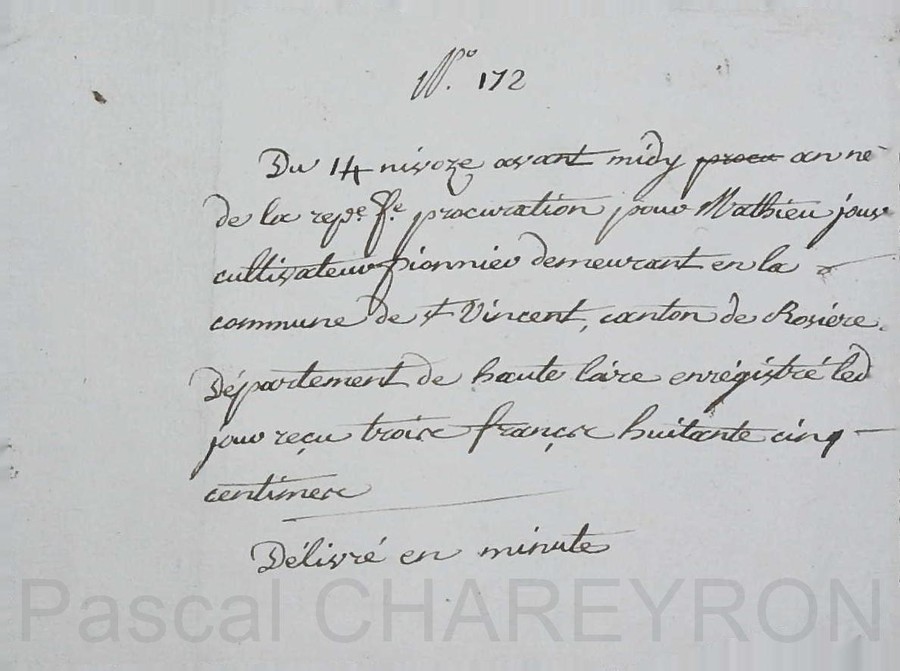 N.º 172
Du 14 nivoze avant midy procu an ne
de la rep.e f.e procuration pour Mathieu jour
cultivateur pionnier demeurant en la
commune de st Vincent, canton de Rosiere.
Département de haute loire enrégistré led
jour reçu troisc françsc huitante cinq
centimesc
Délivré en minute
Pascal CHAREYRON